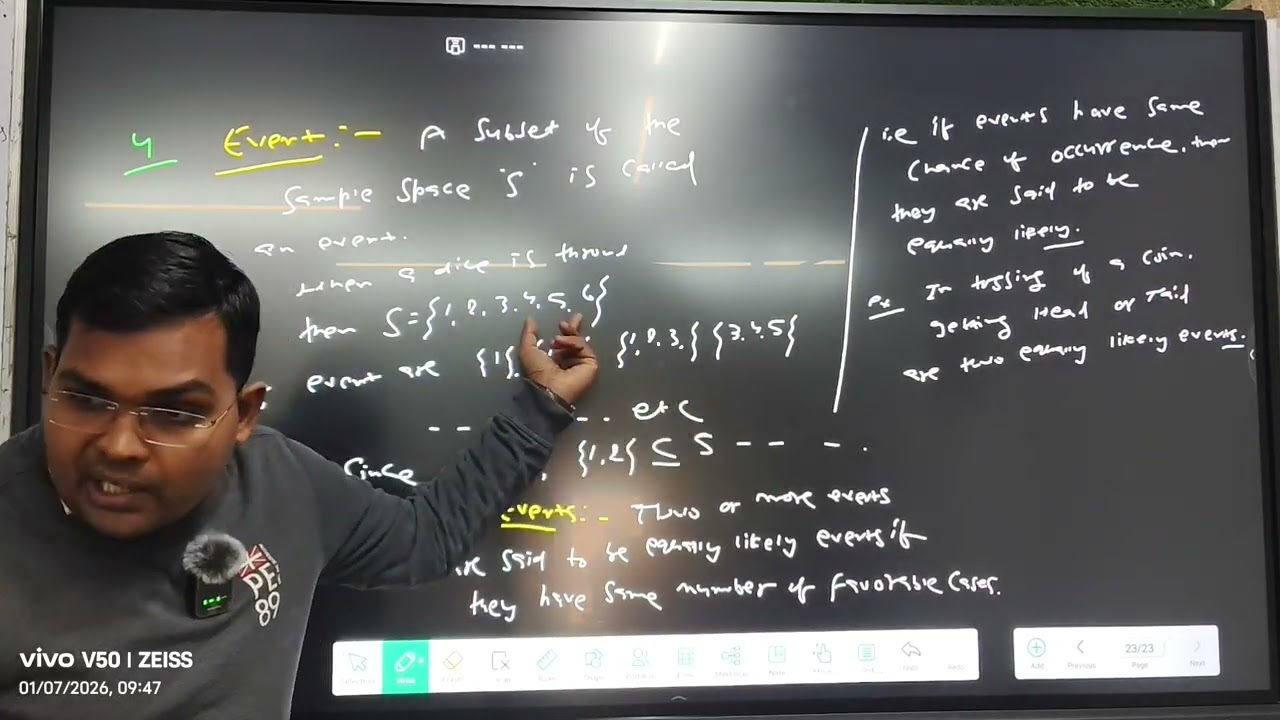 4 Event:- A subset of the
Sample Space "S" is called
an event.
when a dice is thrown
then S={1, 2, 3, 4, 5, 6}
event are {1}, {1, 2, 3,} {3, 4, 5}
-- -- etc
Since {1, 2} ⊆ S -- -- -.
Events:- Two or more events
are said to be equally likely events if
they have same number of favorable cases.
i.e if events have same
chance of occurrence, then
they are said to be
equally likely.
Ex In tossing of a coin.
getting Head or Tail
are two equally likely events.
Eraser
Add
Previous
23/23
Page
Next
Undo
Redo
89
vivo V50 | ZEISS
01/07/2026, 09:47